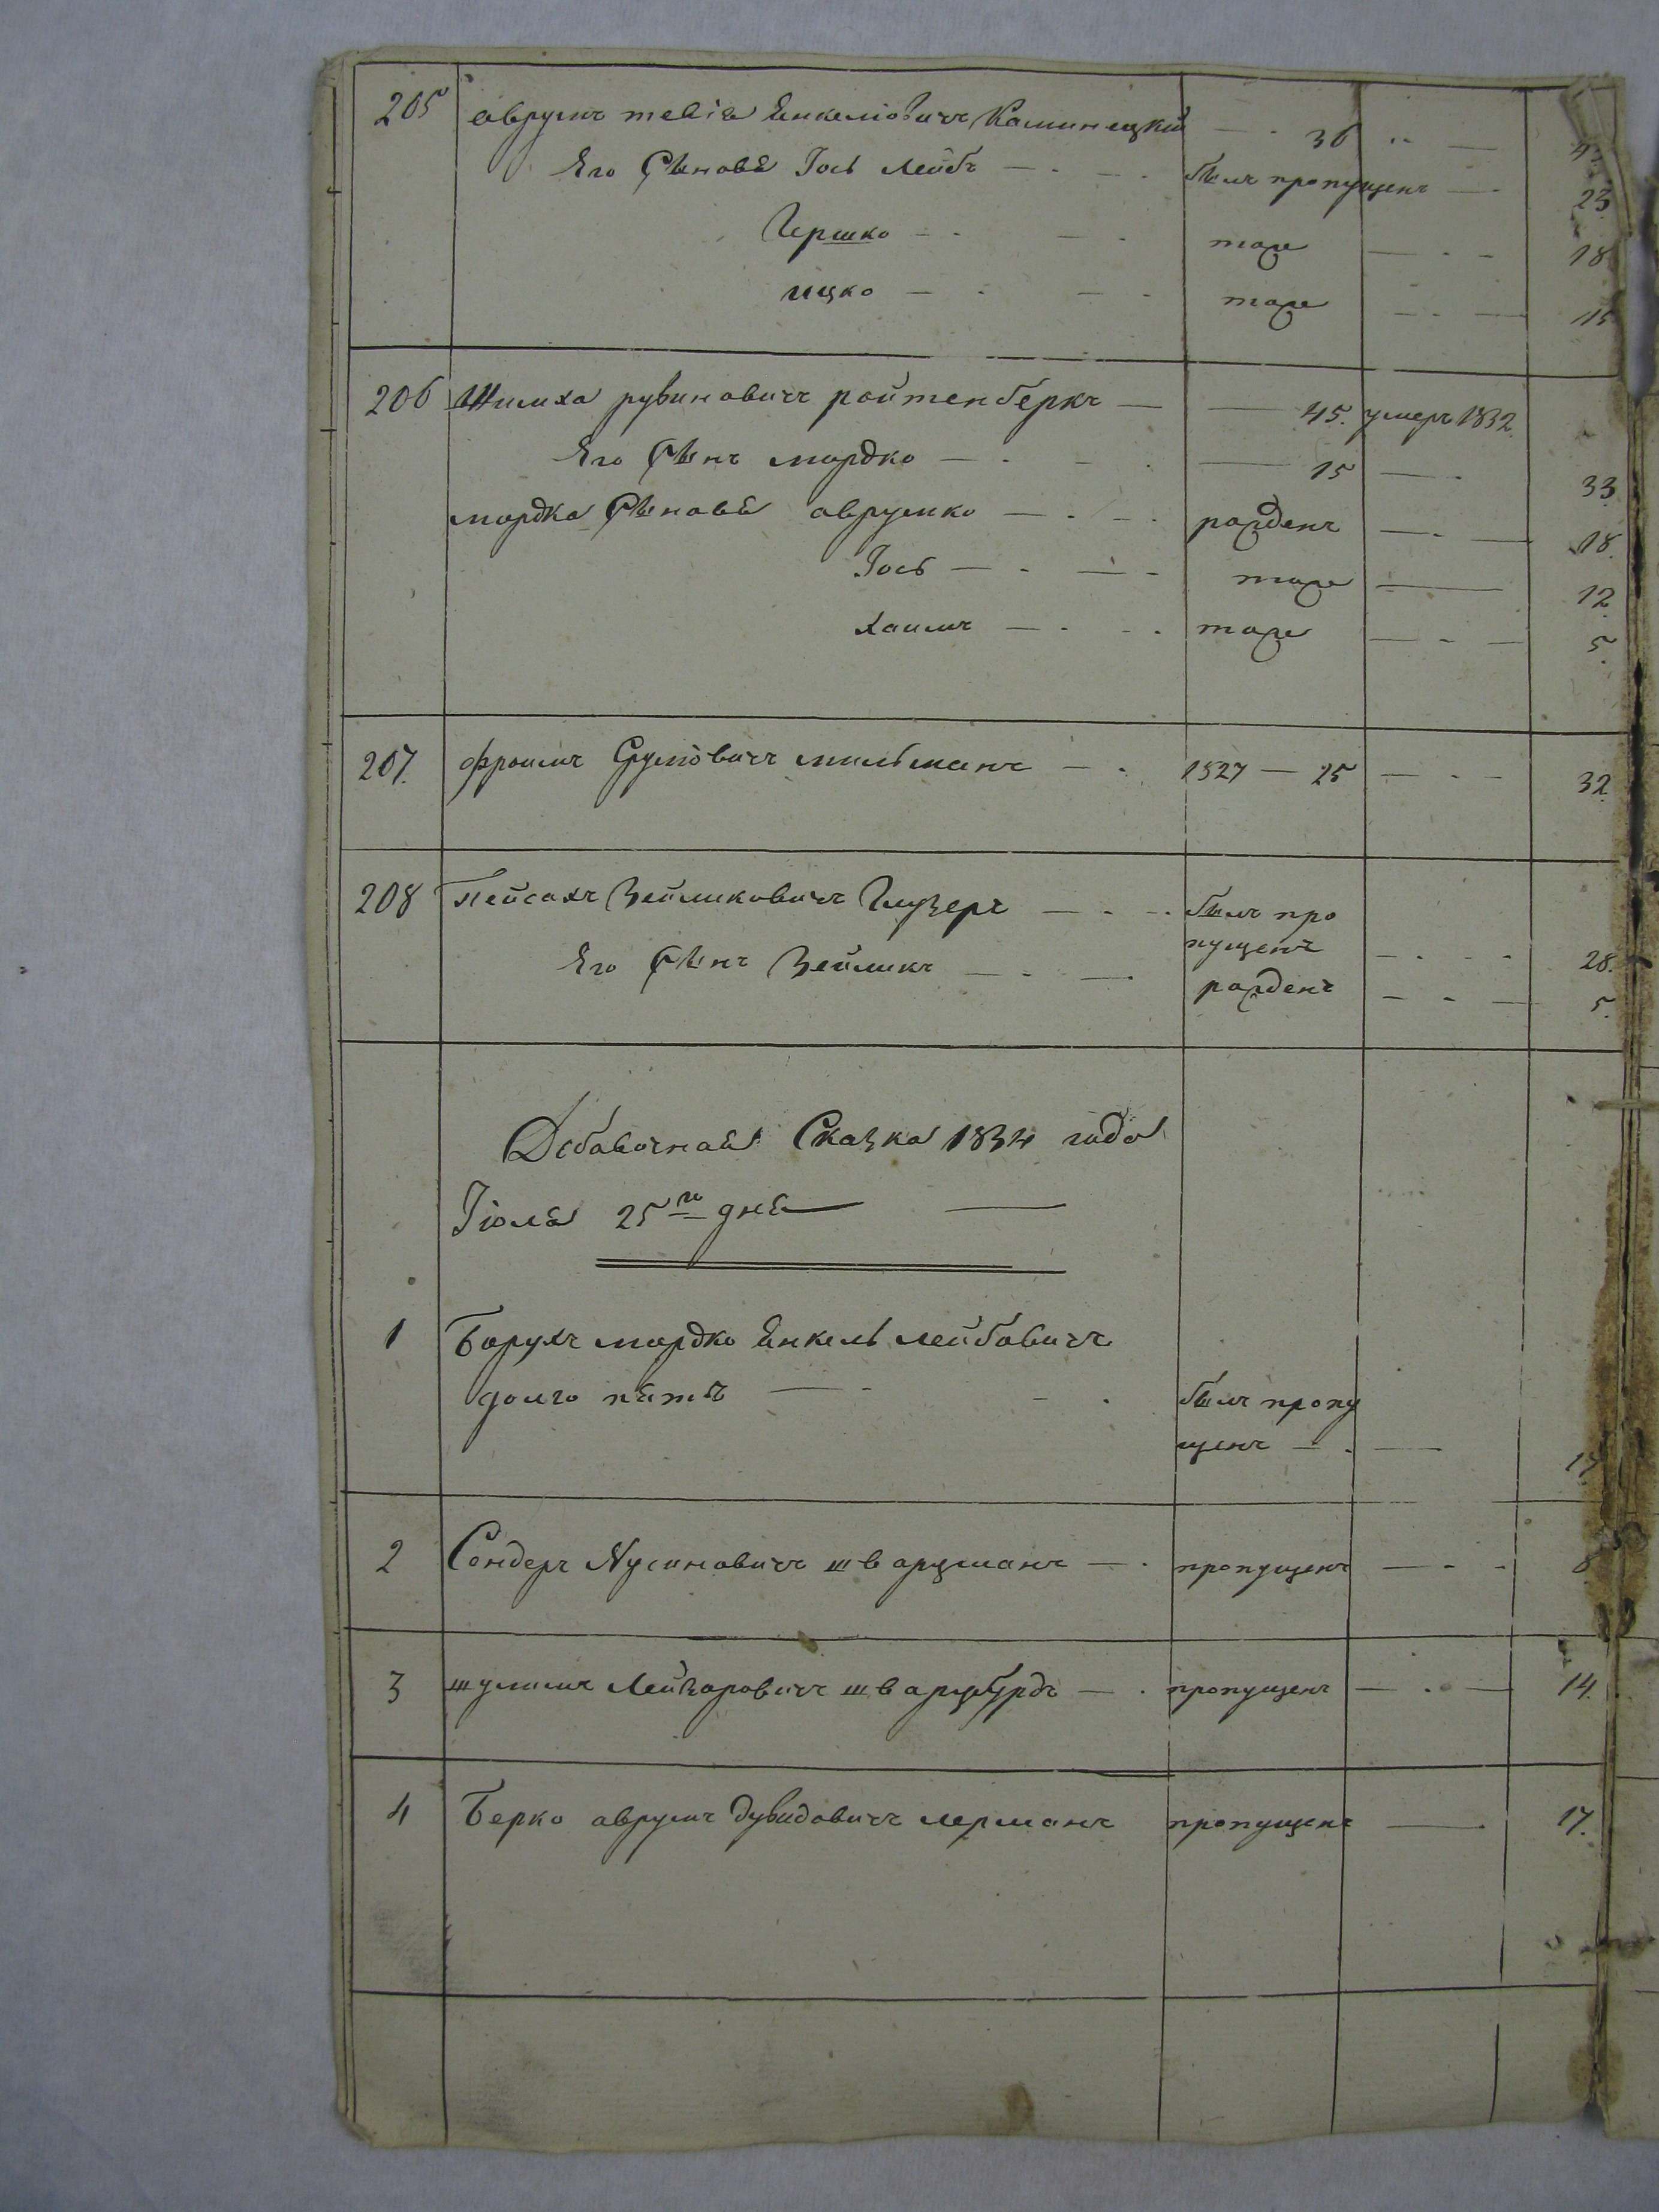 205 аврумъ тевія Янкеліовичъ Каминецкій — 36 —
Его Сыновя Іось Лейбъ — былъ пропущенъ — 23
Гершко — тоже — 18
ицко — тоже — 15
206 Шлиха рувиновичъ ройтенберкъ — 45. умеръ 1832.
Его Сынъ мордко — 15 — 33
мордка Сыновя аврумко — рожденъ — 18.
Іось — тоже — 12
хаимъ — тоже — 5.
207. фроимъ Срулiовичъ мильманъ — 1827 — 25 — 32.
208 Пейсахъ Зейликовичъ Глузеръ — былъ про
пущенъ — 28.
Его Сынъ Зейликъ — рожденъ — 5.
Добавочная Сказка 1834 года
Іюля 25го дня —
1 Борухъ мордко Янкель лейбовичъ
долго пятъ — былъ пропу
щенъ —
2 Сендеръ Нусиновичъ шварцманъ — пропущенъ — 8
3 шулимъ Лейзаровичъ шварцбурдъ — пропущенъ — 14.
4 Берко аврумъ дувидовичъ лерманъ пропущенъ — 17.